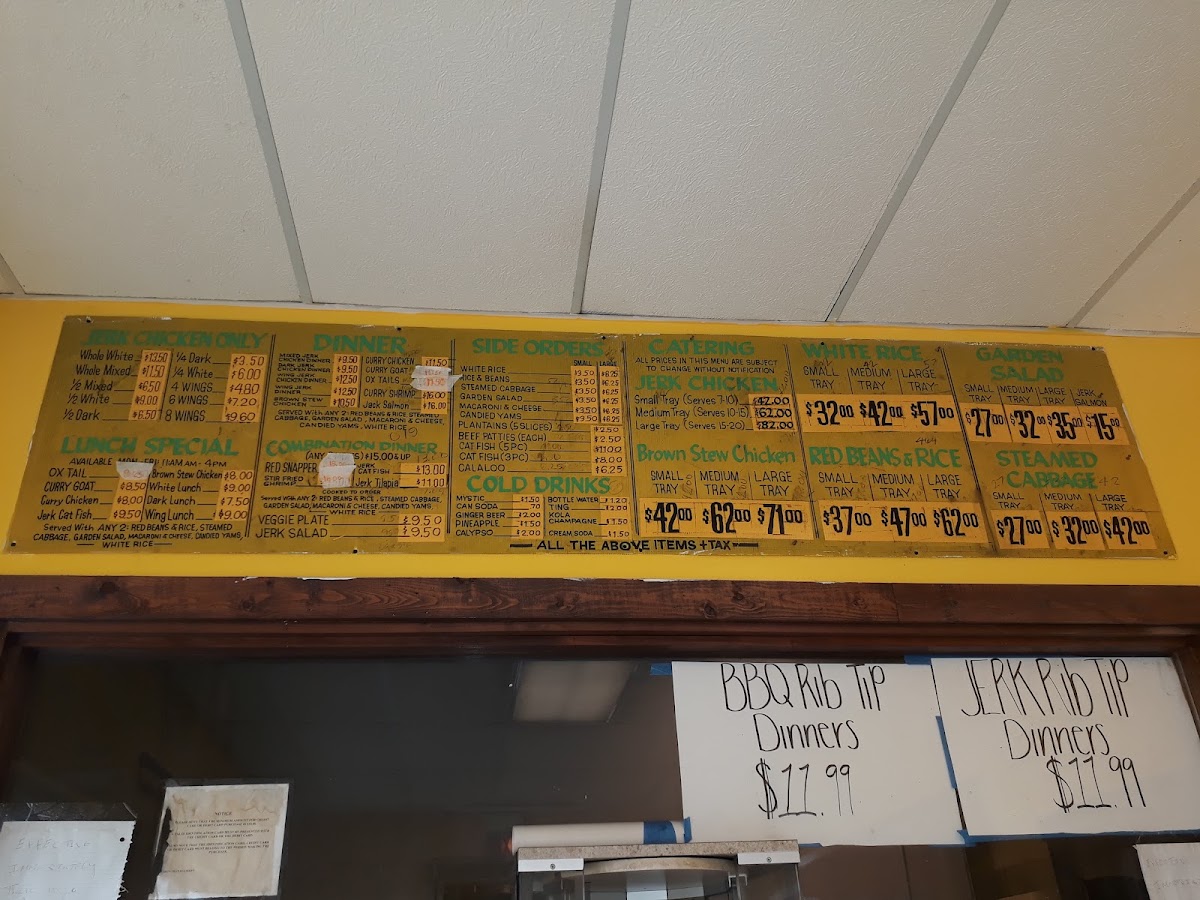 JERK CHICKEN ONLY
Whole White $13.50 ¼ Dark $3.50
Whole Mixed $11.50 ¼ White $6.00
½ Mixed $6.50 4 WINGS $4.80
½ White $9.00 6 WINGS $7.20
½ Dark $6.50 8 WINGS $9.60
LUNCH SPECIAL
AVAILABLE MON-FRI 11AM-4PM
OX TAIL Brown Stew Chicken $8.00
CURRY GOAT $8.50 White Lunch $9.00
Curry Chicken $8.00 Dark Lunch $7.50
Jerk Cat Fish $9.50 Wing Lunch $9.00
Served With ANY 2: RED BEANS & RICE, STEAMED
CABBAGE, GARDEN SALAD, MACARONI & CHEESE, CANDIED YAMS,
WHITE RICE
DINNER
MIXED JERK CHICKEN DINNER $9.50 CURRY CHICKEN $11.50
DARK JERK CHICKEN DINNER $9.50 CURRY GOAT
WING JERK CHICKEN DINNER $12.50 OX TAILS
WING JERK DINNER $12.50 CURRY SHRIMP $16.00
BROWN STEW CHICKEN $10.50 Jack Salmon $16.00
SERVED WITH ANY 2: RED BEANS & RICE, STEAMED
CABBAGE, GARDEN SALAD, MACARONI & CHEESE,
CANDIED YAMS, WHITE RICE
COMBINATION DINNER
$15.00 & UP
RED SNAPPER JERK CATFISH $13.00
STIR FRIED SHRIMP Jerk Tilapia $11.00
COOKED TO ORDER
Served With ANY 2: RED BEANS & RICE, STEAMED CABBAGE,
GARDEN SALAD, MACARONI & CHEESE, CANDIED YAMS,
WHITE RICE
VEGGIE PLATE $9.50
JERK SALAD $9.50
SIDE ORDERS
SMALL LARGE
WHITE RICE $3.50 $6.25
RICE & BEANS $3.50 $6.25
STEAMED CABBAGE $3.50 $6.25
GARDEN SALAD $3.50 $6.25
MACARONI & CHEESE $3.50 $6.25
CANDIED YAMS $3.50 $6.25
PLANTAINS (5 SLICES) $2.50
BEEF PATTIES (EACH) $2.50
CAT FISH (5 PC)
CAT FISH (3 PC) $8.00
CALALOO $6.25
COLD DRINKS
MYSTIC $1.50 BOTTLE WATER $1.20
CAN SODA .70 TING $2.00
GINGER BEER $2.00 KOLA
PINEAPPLE $1.50 CHAMPAGNE $1.50
CALYPSO $2.00 CREAM SODA $1.50
ALL THE ABOVE ITEMS + TAX
CATERING
ALL PRICES IN THIS MENU ARE SUBJECT
TO CHANGE WITHOUT NOTIFICATION
JERK CHICKEN
Small Tray (Serves 7-10) $42.00
Medium Tray (Serves 10-15) $62.00
Large Tray (Serves 15-20) $82.00
Brown Stew Chicken
SMALL TRAY MEDIUM TRAY LARGE TRAY
$42.00 $62.00 $71.00
WHITE RICE
SMALL TRAY MEDIUM TRAY LARGE TRAY
$32.00 $42.00 $57.00
RED BEANS & RICE
SMALL TRAY MEDIUM TRAY LARGE TRAY
$37.00 $47.00 $62.00
GARDEN
SALAD
SMALL TRAY MEDIUM TRAY LARGE TRAY JERK SALMON
$27.00 $32.00 $35.00 $15.00
STEAMED
CABBAGE
SMALL TRAY MEDIUM TRAY LARGE TRAY
$27.00 $32.00 $42.00
BBQ Rib Tip
Dinners
$11.99
JERK Rib TIP
Dinners
$11.99
NOTICE